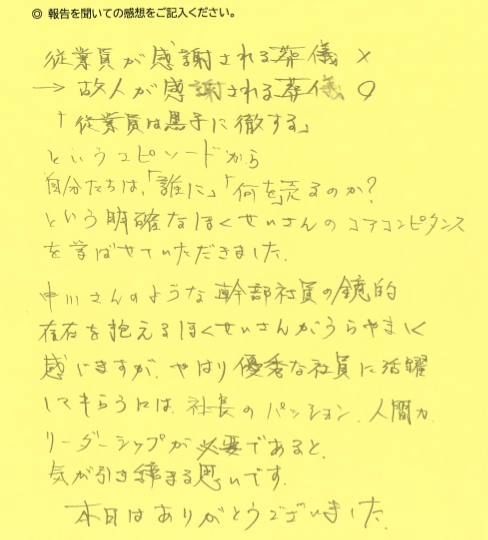 ◎ 報告を聞いての感想をご記入ください。
従業員が感謝される葬儀 ×
→ 故人が感謝される葬儀 ○
「従業員は黒子に徹する」
というエピソードから
自分たちは、「誰に」「何を」売るのか？
という明確なほくせいさんのコアコンピタンス
を学ばせていただきました。
中川さんのような幹部社員の鏡的
存在を抱えるほくせいさんがうらやましく
感じますが、やはり優秀な社員に活躍
してもらうには、社長のパッション、人間力、
リーダーシップが必要であると、
気が引き締まる思いです。
本日はありがとうございました。